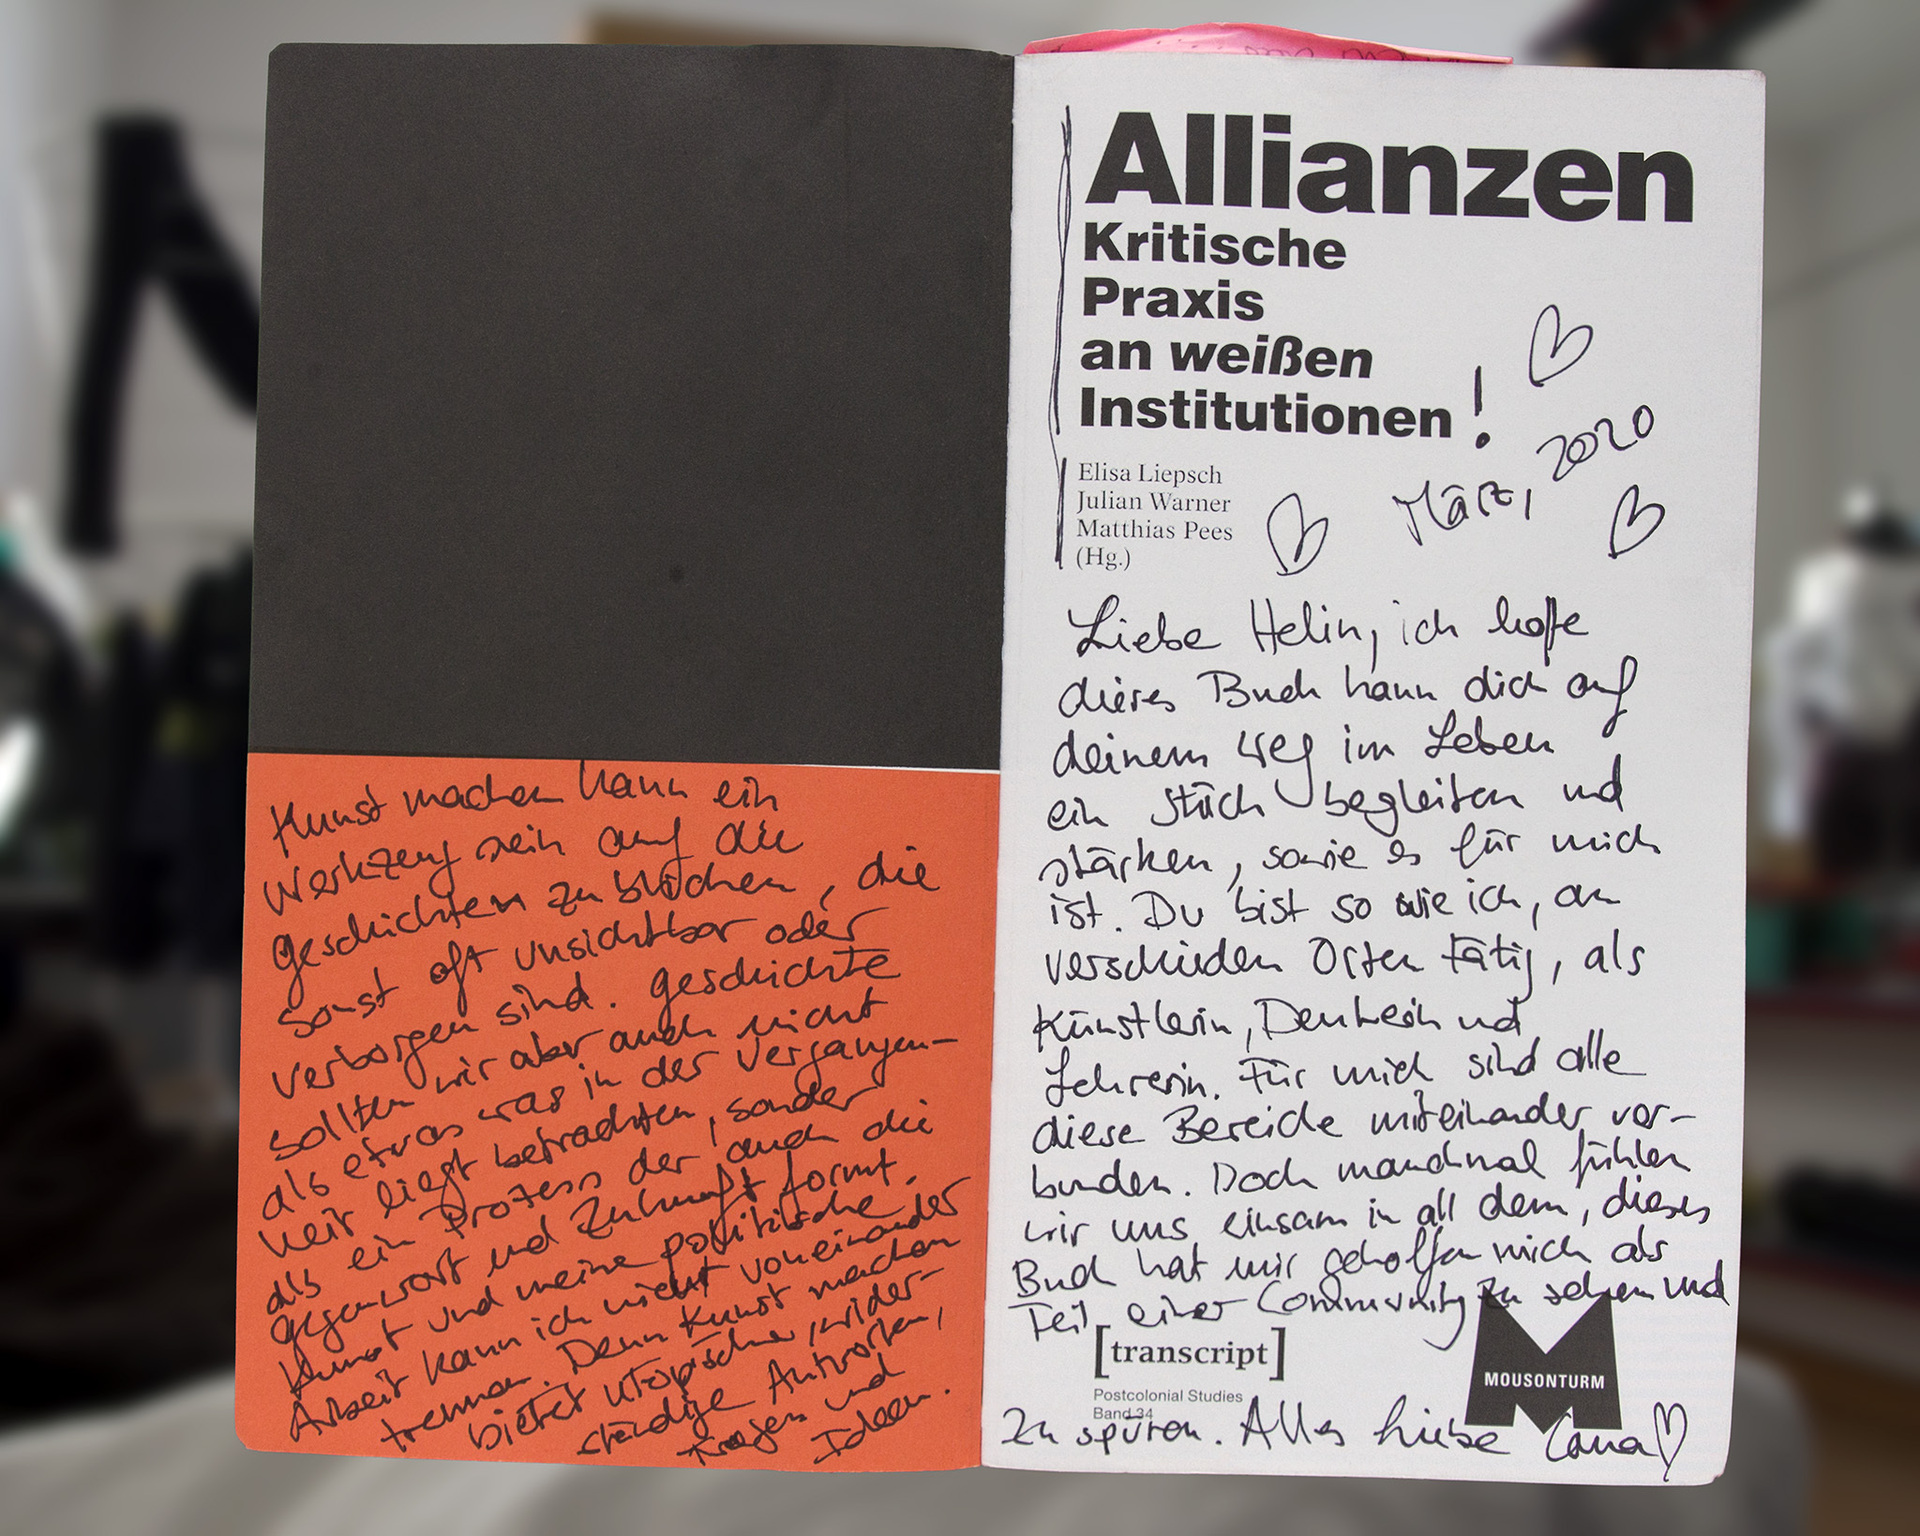 Kunst machen kann ein
Werkzeug sein auf die
geschichten zu blicken, die
sonst oft unsichtbar oder
verborgen sind. geschichte
sollten wir aber auch nicht
als etwas was in der vergangen-
heit liegt betrachten, sonder
als ein Prozess der auch die
gegenwart und Zukunft formt.
Kunst und meine politische
Arbeit kann ich nicht voneinander
trennen. Denn Kunst machen
bietet utopische, wider-
ständige Antworten,
Fragen und
Ideen.
Allianzen
Kritische
Praxis
an weißen
Institutionen!
Elisa Liepsch
Julian Warner
Matthias Pees
(Hg.)
März, 2020
Liebe Helin, ich hoffe
dieses Buch kann dich auf
deinem Weg im Leben
ein Stück begleiten und
stärken, sowie es für mich
ist. Du bist so wie ich, an
verschieden Orten tätig, als
Künstlerin, Denkerin und
Lehrerin. Für mich sind alle
diese Bereiche miteinander ver-
bunden. Doch manchmal fühlen
wir uns einsam in all dem, dieses
Buch hat mir geholfen mich als
Teil einer Community zu sehen und
[transcript]
MOUSONTURM
Postcolonial Studies
Band 34
zu spüren. Alles Liebe Cana